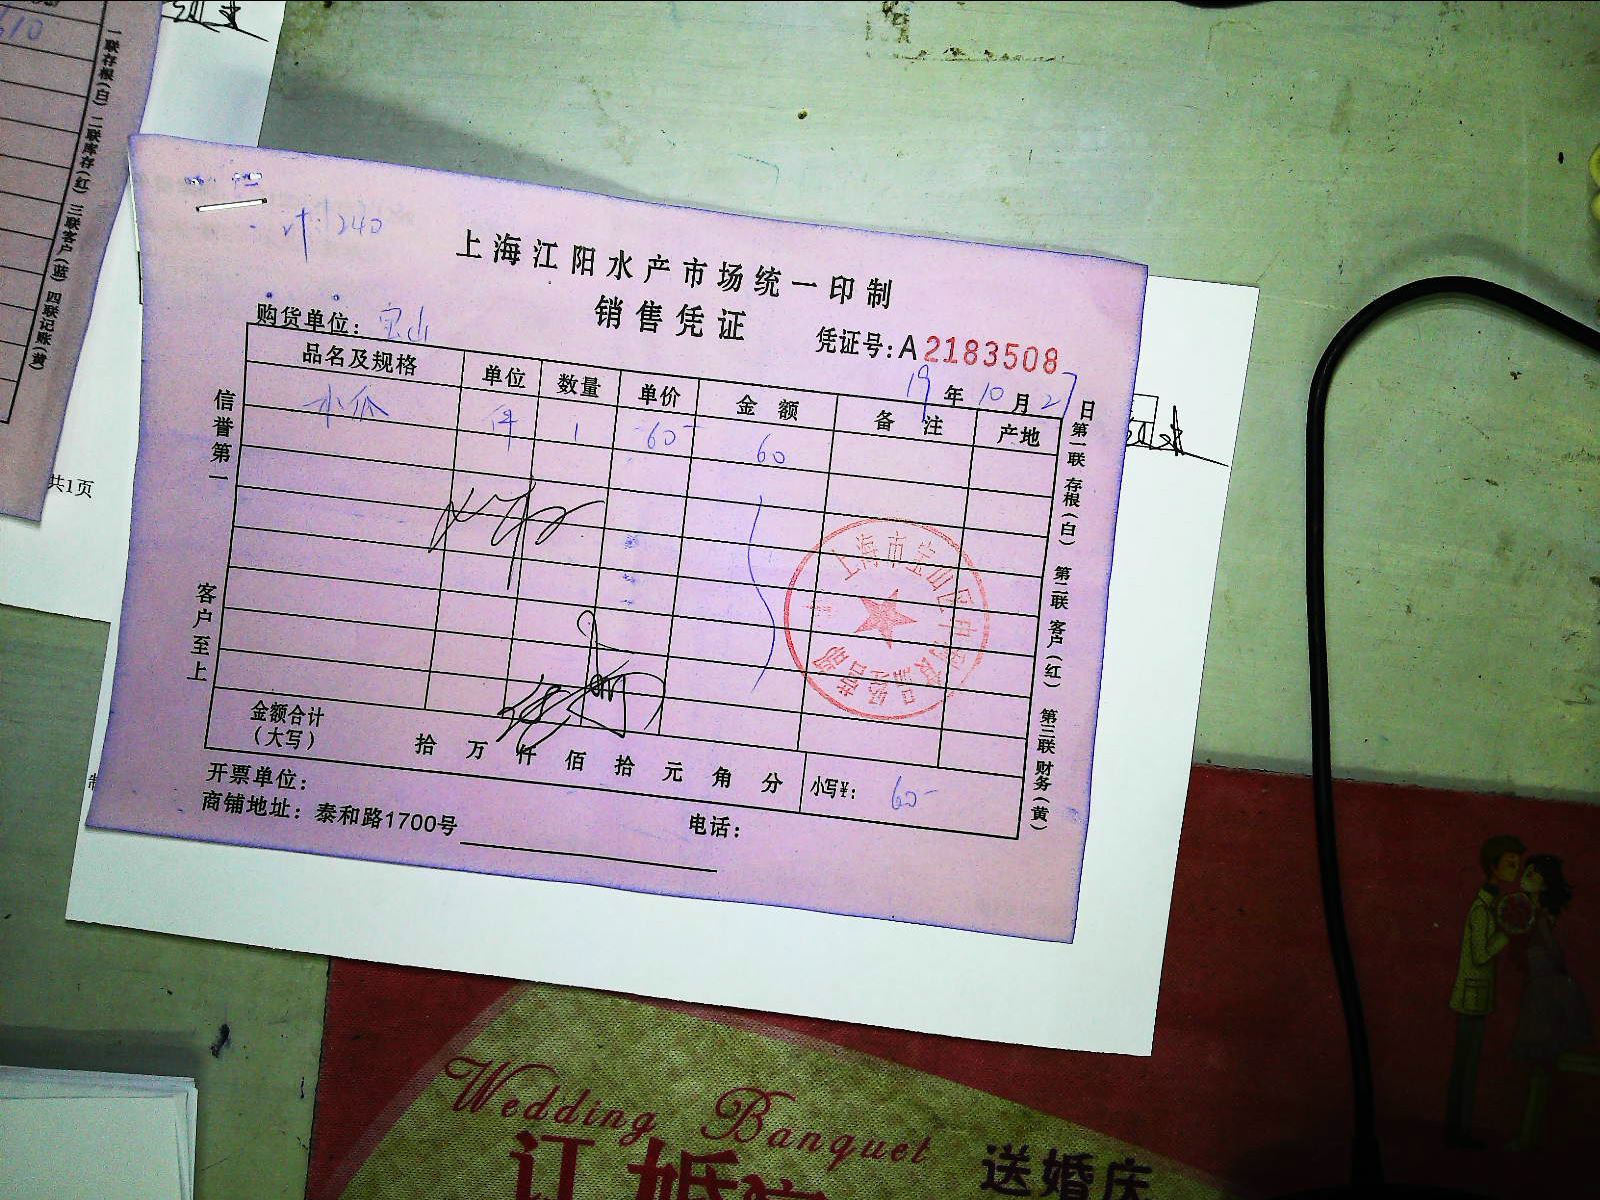 610
一联存根(白) 二联库存(红) 三联客户(蓝) 四联记账(黄)
共1页
计:240
上海江阳水产市场统一印制
销售凭证
购货单位: 宝山
凭证号:A2183508
19年10月27日
品名及规格 单位 数量 单价 金额 备注 产地
件 1 60 60
信誉第一
客户至上
第一联 存根(白) 第二联 客户(红) 第三联 财务(黄)
上海市宝山区
金额合计
(大写)
拾 万 仟 佰 拾 元 角 分 小写¥: 60-
开票单位:
商铺地址: 泰和路1700号
电话:
Wedding Banquet
订婚宴
送婚庆